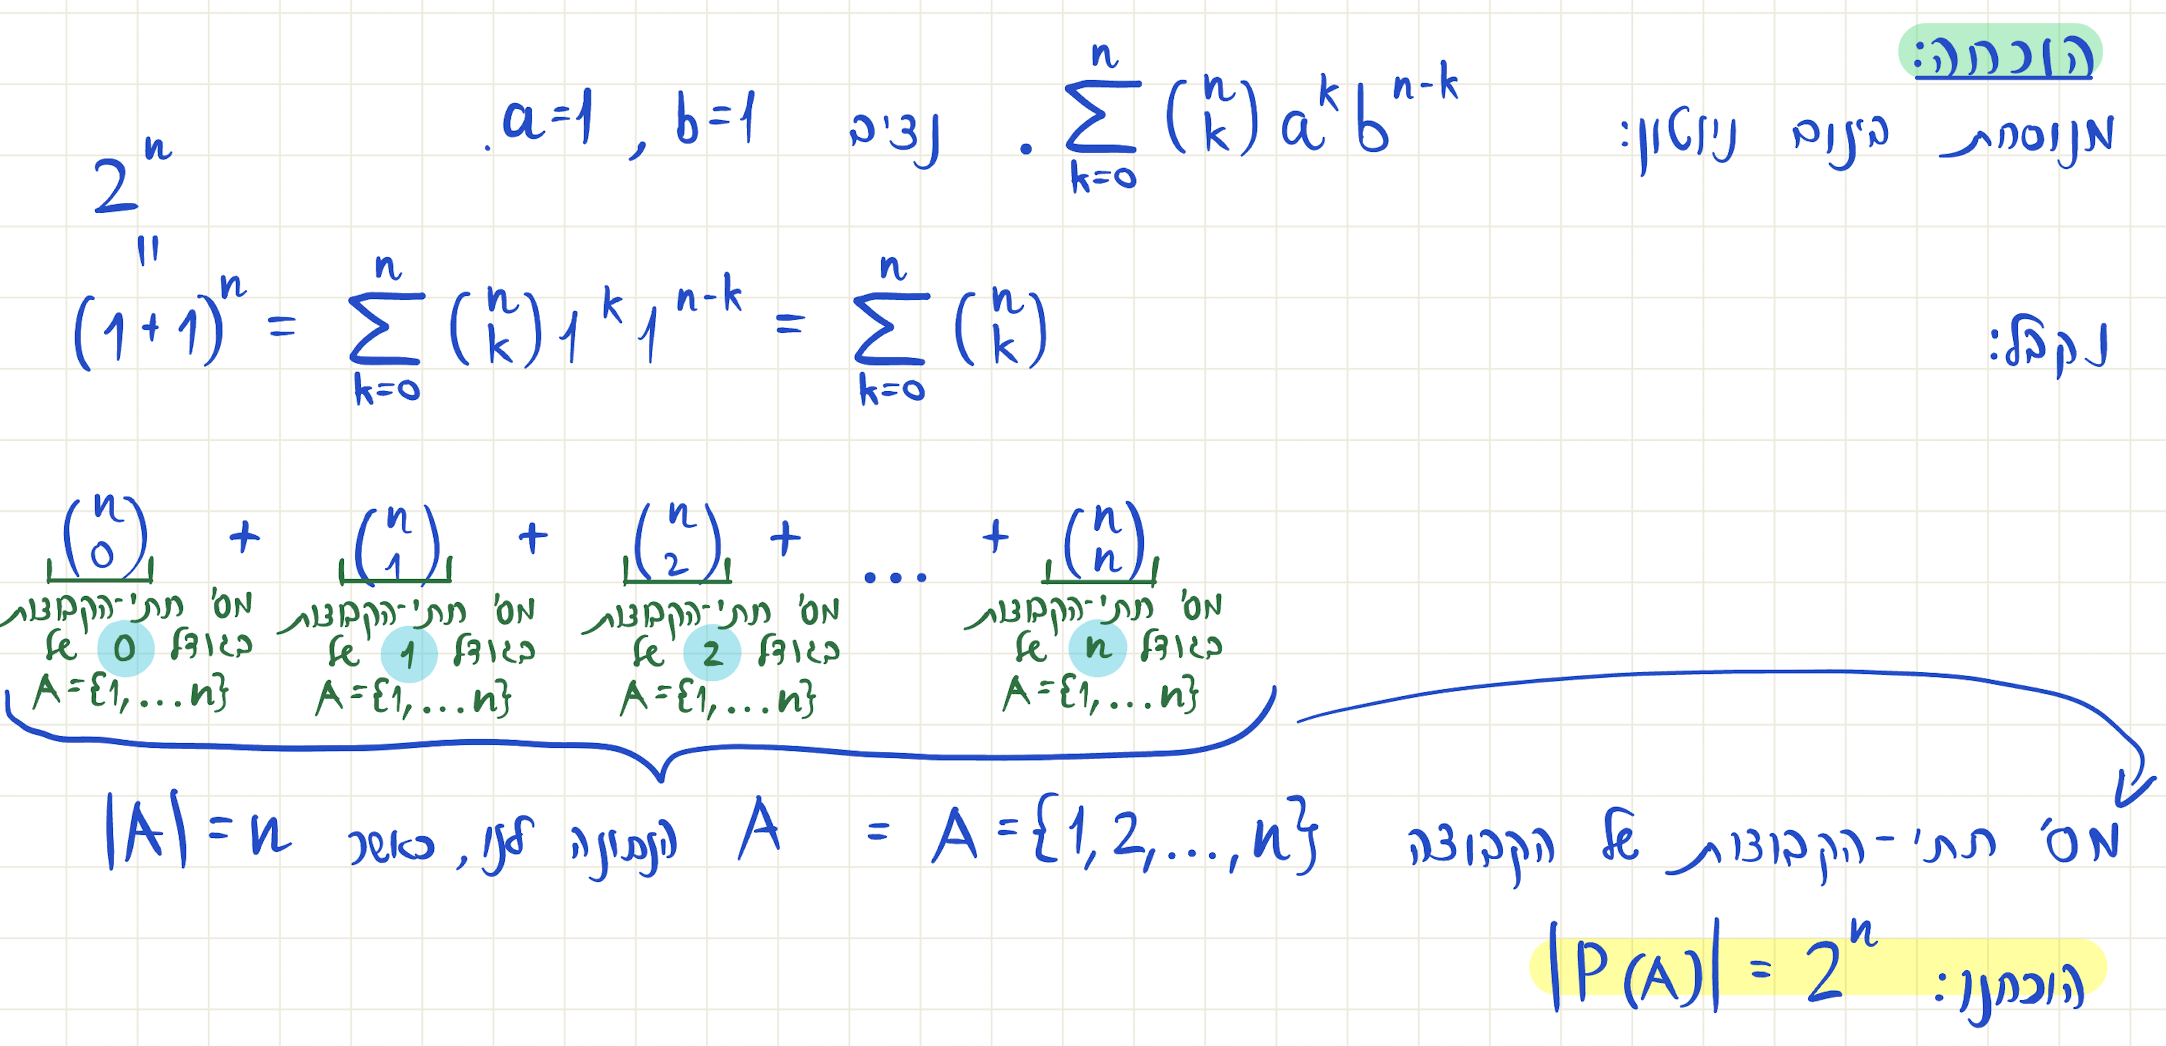 הוכחה:
מנוסחת בינום ניוטון: \sum_{k=0}^{n} \binom{n}{k} a^k b^{n-k} . נציב a=1 , b=1 .
נקבל:
2^n
=
(1+1)^n = \sum_{k=0}^{n} \binom{n}{k} 1^k 1^{n-k} = \sum_{k=0}^{n} \binom{n}{k}
\binom{n}{0} + \binom{n}{1} + \binom{n}{2} + ... + \binom{n}{n}
מס' תתי-הקבוצות בגודל 0 של A={1,...n}
מס' תתי-הקבוצות בגודל 1 של A={1,...n}
מס' תתי-הקבוצות בגודל 2 של A={1,...n}
מס' תתי-הקבוצות בגודל n של A={1,...n}
מס' תתי-הקבוצות של הקבוצה A={1,2,...,n} = A הנתונה לנו, כאשר |A|=n
הוכחנו: |P(A)| = 2^n